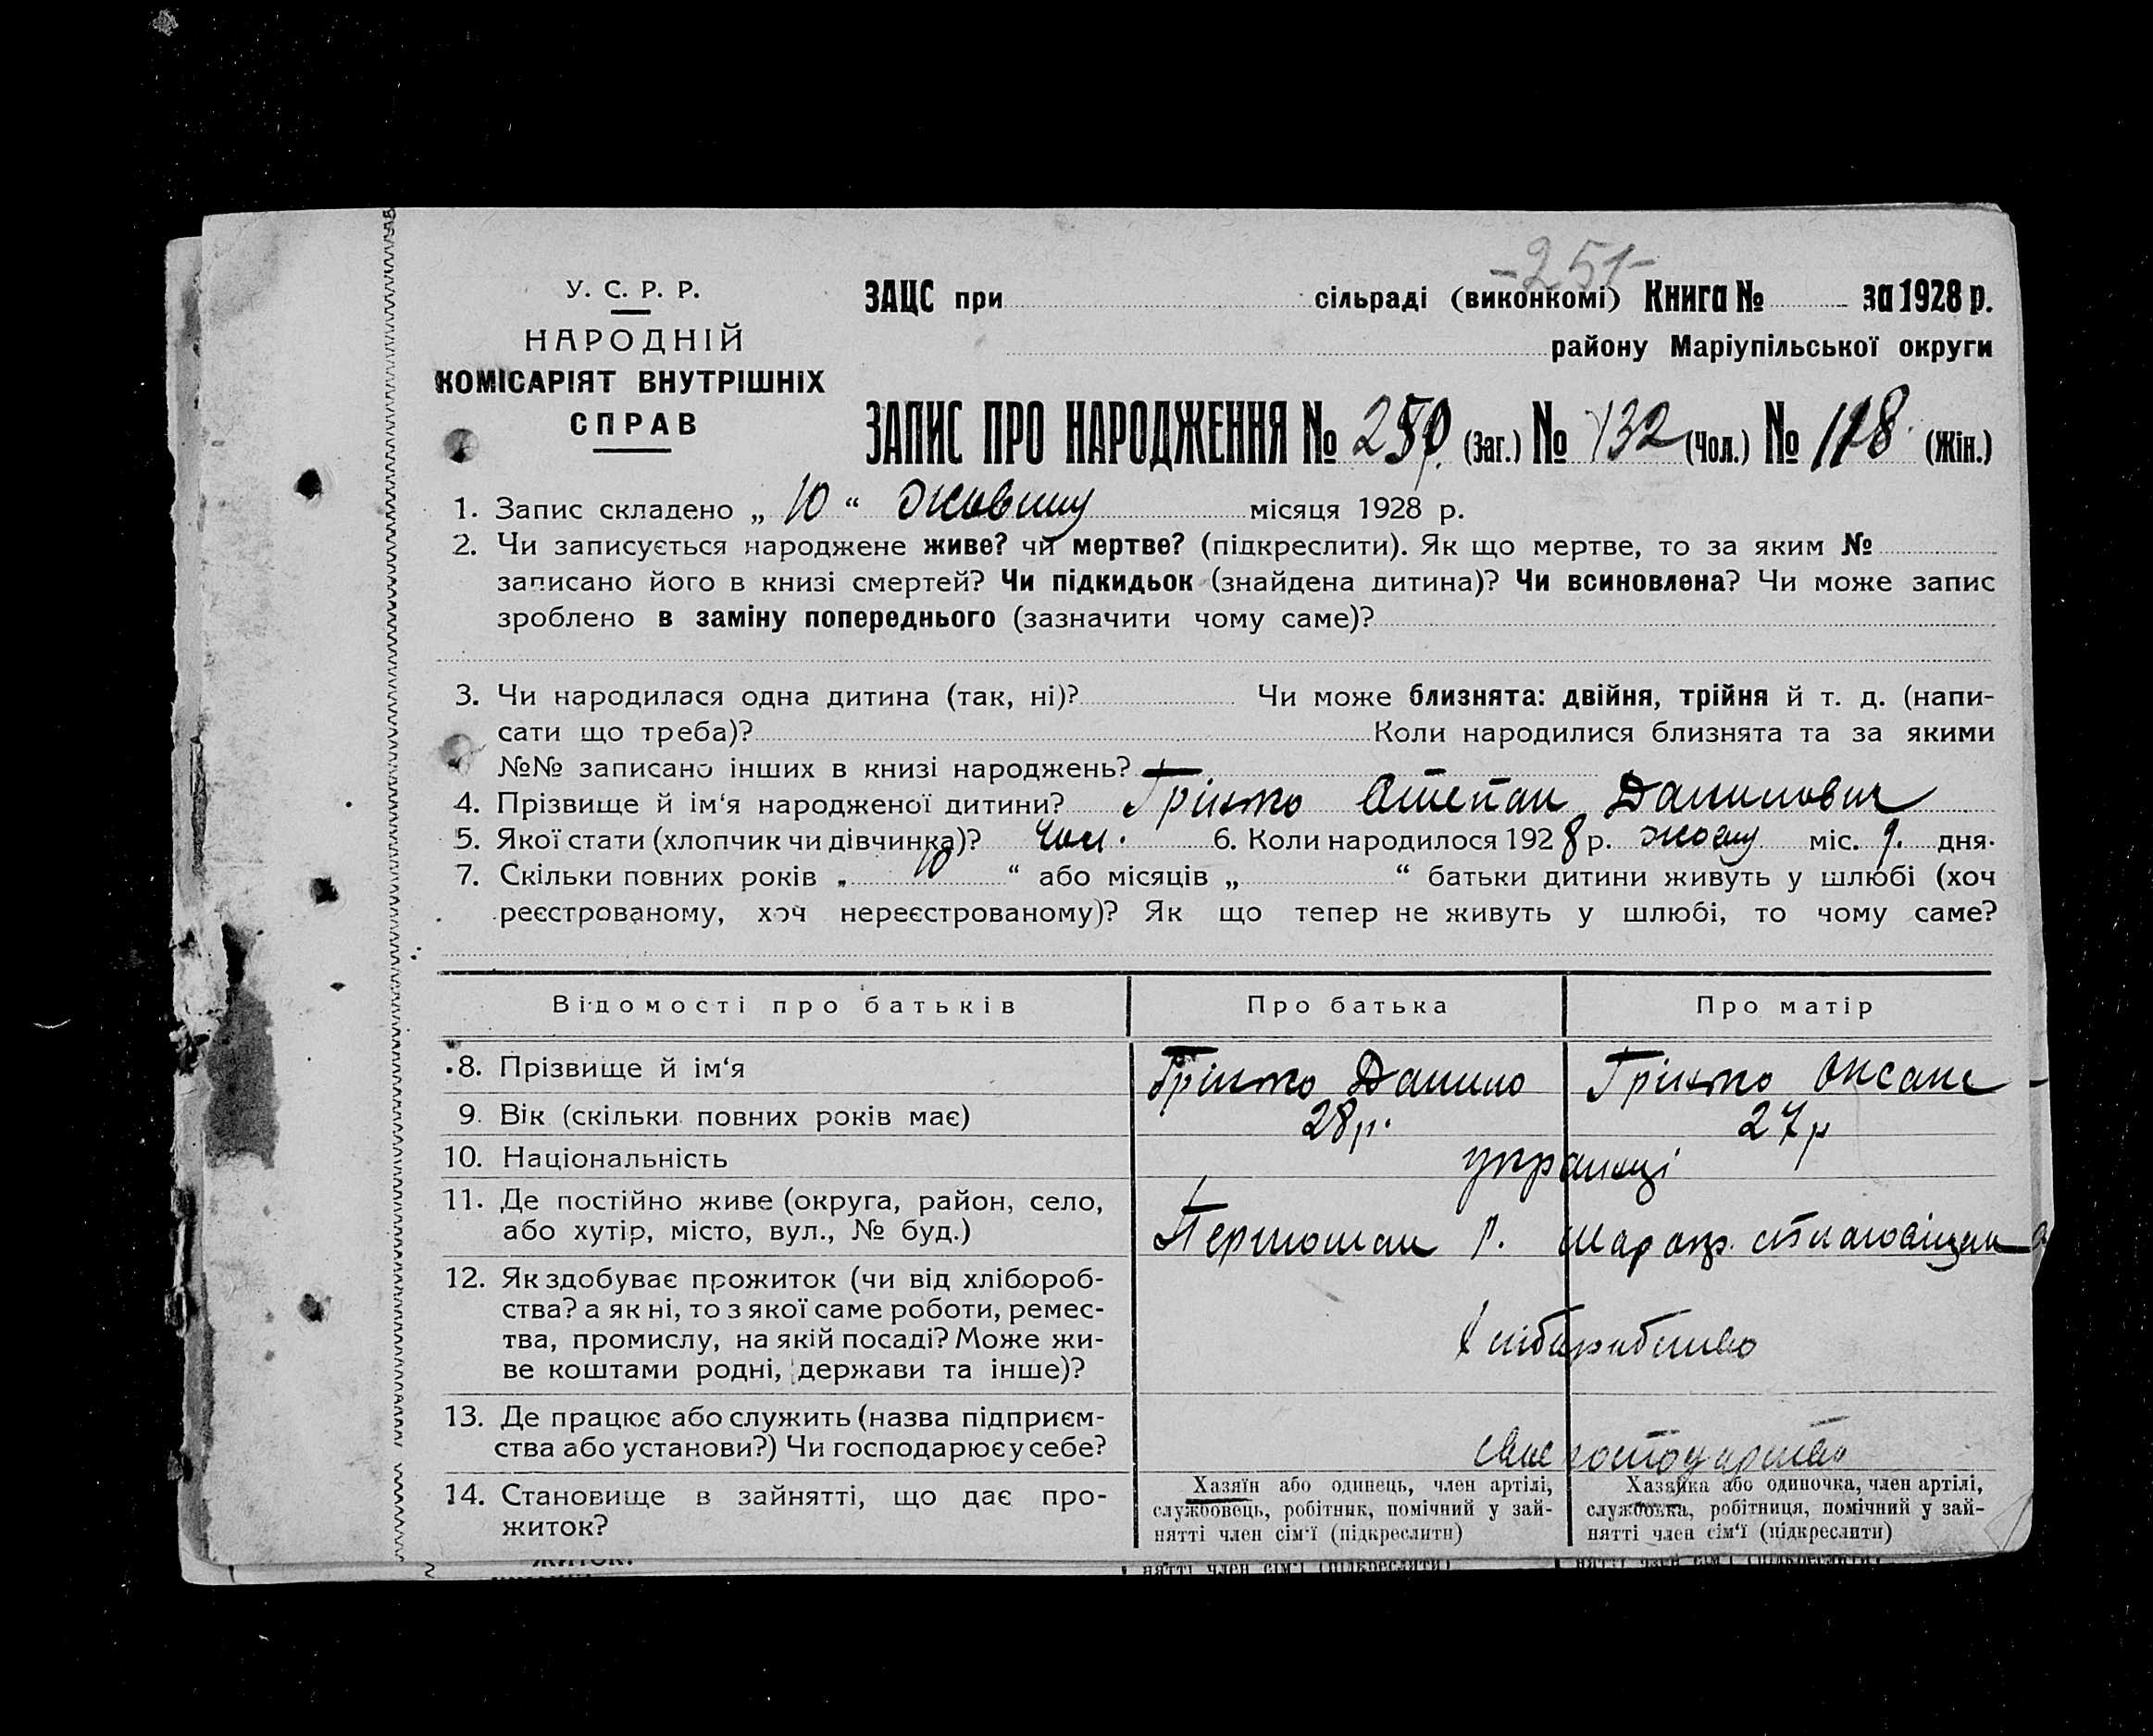 -251-
У. С. Р. Р.
НАРОДНІЙ
КОМІСАРІЯТ ВНУТРІШНІХ
СПРАВ
ЗАЦС при сільраді (виконкомі) Книга № за 1928 р.
району Маріупільської округи
ЗАПИС ПРО НАРОДЖЕННЯ № 250 (Заг.) № 132 (Чол.) № 118 (Жін.)
1. Запис складено „ 10 “ Жовтню місяця 1928 р.
2. Чи записується народжене живе? чи мертве? (підкреслити). Як що мертве, то за яким №
записано його в книзі смертей? Чи підкидьок (знайдена дитина)? Чи всиновлена? Чи може запис
зроблено в заміну попереднього (зазначити чому саме)?
3. Чи народилася одна дитина (так, ні)? Чи може близнята: двійня, трійня й т. д. (напи-
сати що треба)? Коли народилися близнята та за якими
№№ записано інших в книзі народжень?
4. Прізвище й ім‘я народженої дитини? Грінько Степан Данилович
5. Якої стати (хлопчик чи дівчинка)? чол. 6. Коли народилося 1928 р. міс. 9. дня.
7. Скільки повних років „ 10 “ або місяців „ “ батьки дитини живуть у шлюбі (хоч
реєстрованому, хоч нереєстрованому)? Як що тепер не живуть у шлюбі, то чому саме?
Відомості про батьків Про батька Про матір
8. Прізвище й ім‘я Грінько Данило Грінько Оксана
9. Вік (скільки повних років має) 28 р. 27 р
10. Національність українці
11. Де постійно живе (округа, район, село,
або хутір, місто, вул., № буд.) р. Мар окр.
12. Як здобуває прожиток (чи від хлібороб-
ства? а як ні, то з якої саме роботи, ремес-
тва, промислу, на якій посаді? Може жи-
ве коштами родні, держави та інше)? Хліборобство
13. Де працює або служить (назва підприєм-
ства або установи?) Чи господарює у себе? своє господарство
14. Становище в зайнятті, що дає про-
житок?
Хазяїн або одинець, член артілі,
службовець, робітник, помічний у зай-
нятті член сім‘ї (підкреслити)
Хазяйка або одиночка, член артілі,
службовка, робітниця, помічний у зай-
нятті член сім‘ї (підкреслити)